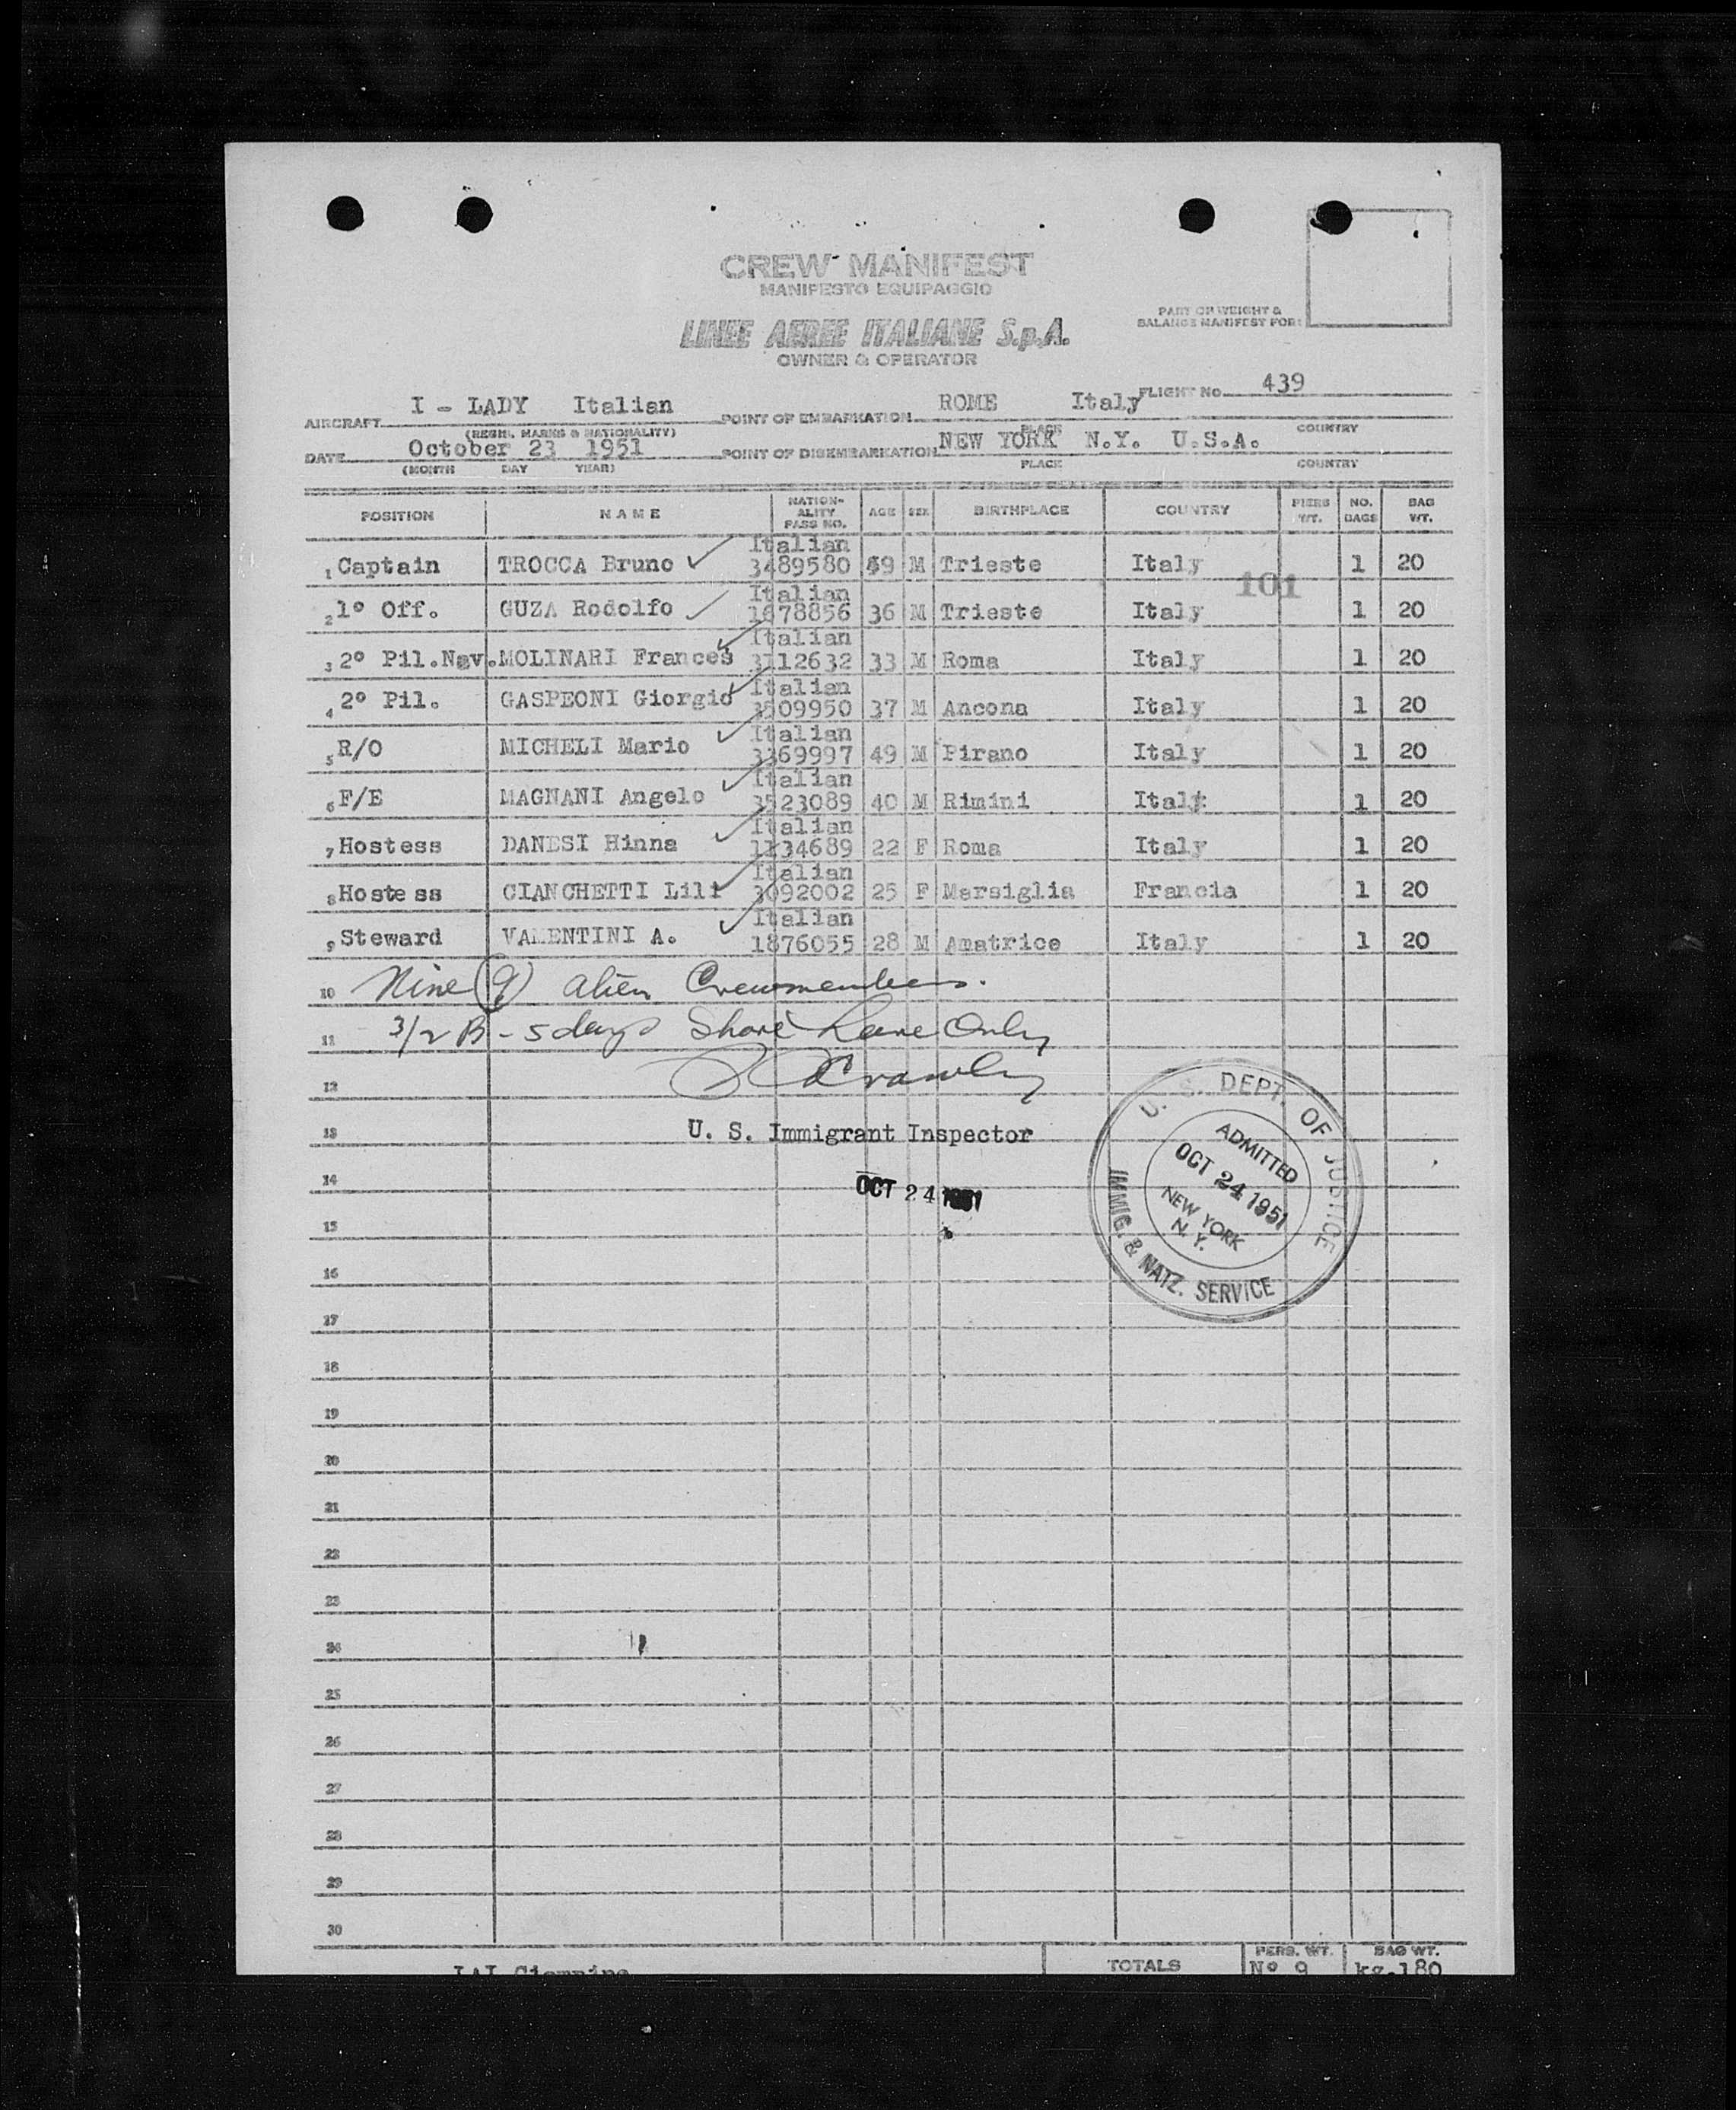 CREW MANIFEST
MANIFESTO EQUIPAGGIO
PART OF WEIGHT &
BALANCE MANIFEST FOR:
LINEE AEREE ITALIANE S.p.A.
OWNER & OPERATOR
AIRCRAFT I - LADY Italian POINT OF EMBARKATION ROME Italy FLIGHT No. 439
(REGN. MARKS & NATIONALITY) PLACE COUNTRY
DATE October 23 1951 POINT OF DISEMBARKATION NEW YORK N.Y. U.S.A.
(MONTH DAY YEAR) PLACE COUNTRY
POSITION NAME NATION-ALITY PASS NO. AGE SEX BIRTHPLACE COUNTRY PERS WT. NO. BAGS BAG WT.
1 Captain TROCCA Bruno Italian 3489580 49 M Trieste Italy 1 20
101
2 1º Off. GUZA Rodolfo Italian 1678856 36 M Trieste Italy 1 20
3 2º Pil.Nav. MOLINARI Frances Italian 3112632 33 M Roma Italy 1 20
4 2º Pil. GASPEONI Giorgio Italian 3509950 37 M Ancona Italy 1 20
5 R/O MICHELI Mario Italian 3369997 49 M Pirano Italy 1 20
6 F/E MAGNANI Angelo Italian 3523089 40 M Rimini Italy 1 20
7 Hostess DANESI Hinna Italian 1134689 22 F Roma Italy 1 20
8 Hostess CIANCHETTI Lili Italian 3092002 25 F Marsiglia Francia 1 20
9 Steward VALENTINI A. Italian 1876055 28 M Amatrice Italy 1 20
10 Nine (9) alien Crewmembers.
11 3/2 B - 5 days Shore Leave Only
12 Crawley
13 U. S. Immigrant Inspector
14 OCT 24 1951
U. S. DEPT. OF JUSTICE
ADMITTED
OCT 24 1951
NEW YORK
N. Y.
IMMIG. & NATZ. SERVICE
15
16
17
18
19
20
21
22
23
24
25
26
27
28
29
30
TOTALS PERS. WT. BAG WT.
LAI Ciampino Nº 9 kg.180